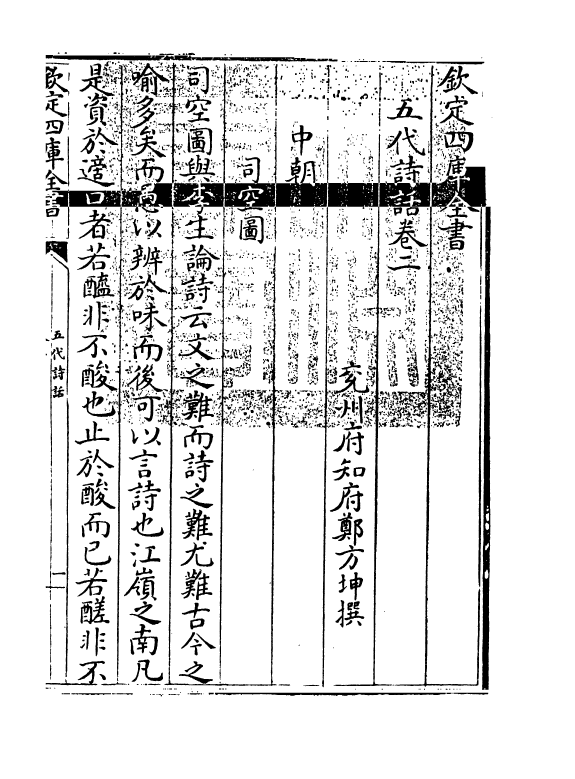 欽定四庫全書
五代詩話卷二
兖州府知府鄭方坤撰
中朝
司空圖
司空圖與李生論詩云文之難而詩之難尤難古今之
喻多矣而愚以辨於味而後可以言詩也江嶺之南凡
是資於適口者若醯非不酸也止於酸而已若鹺非不
欽定四庫全書
五代詩話
一